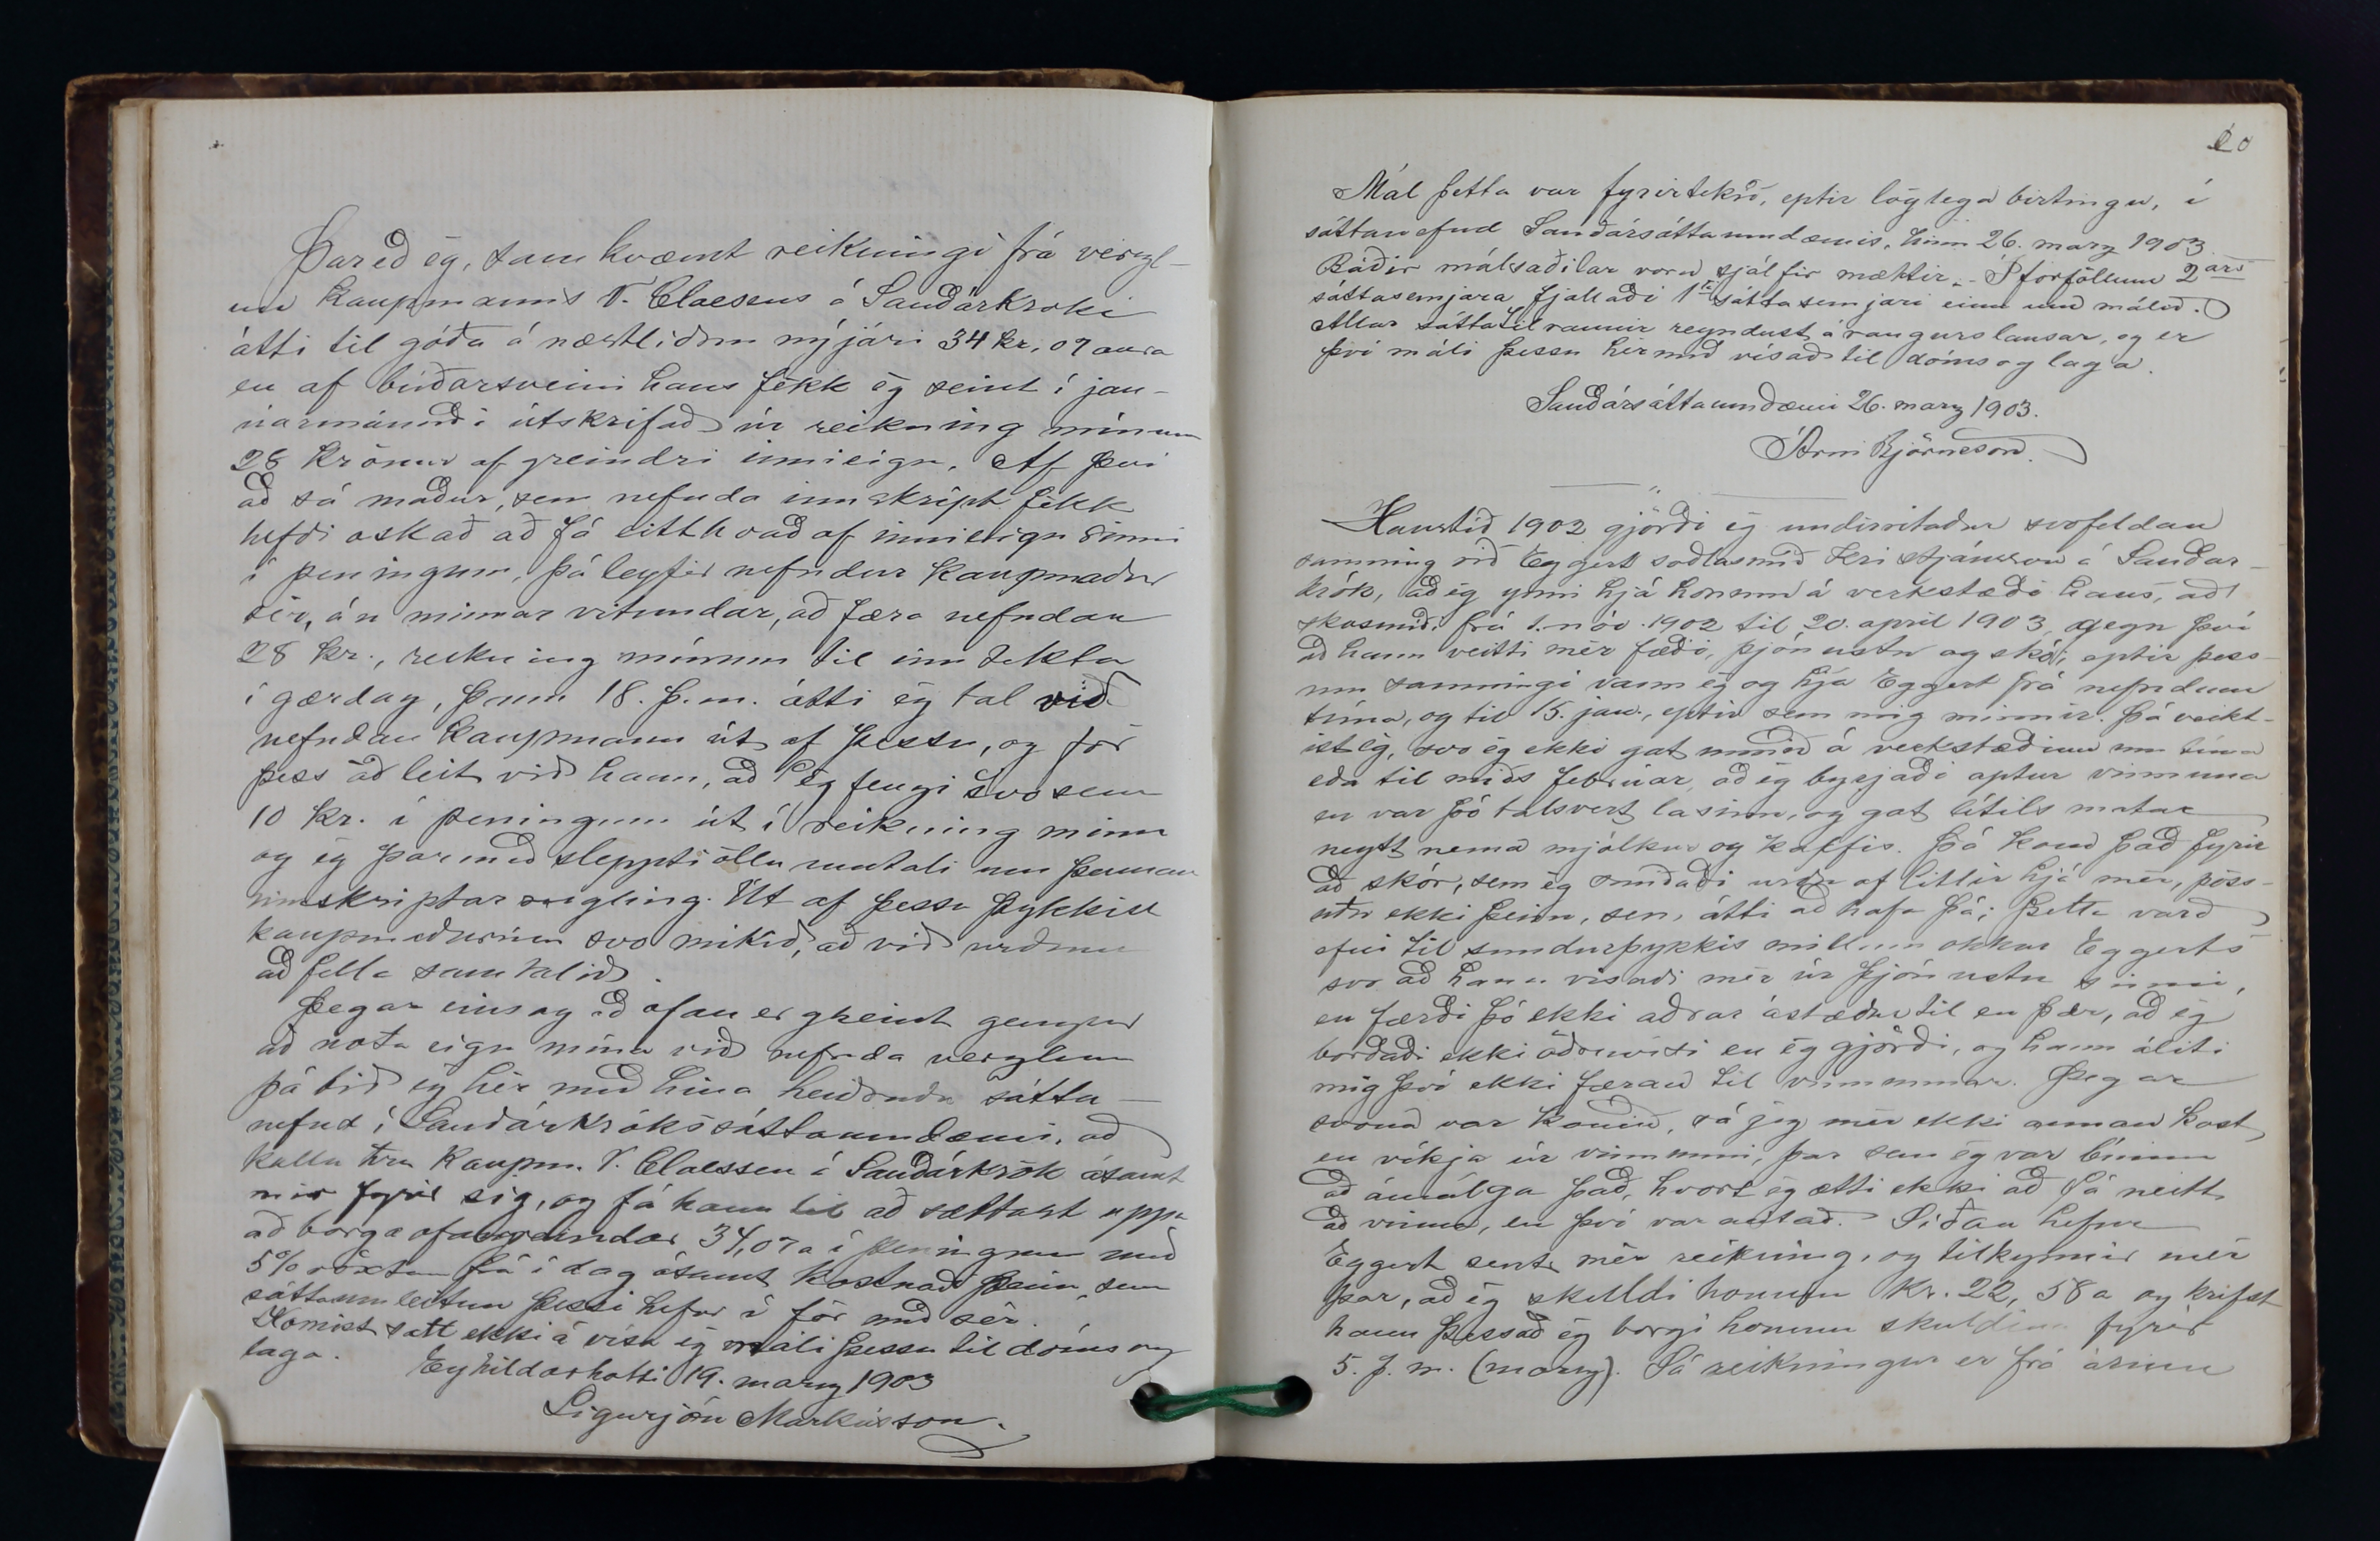 Þareð eg, samkvæmt reikningi frá verzl-
un kaupmanns V. Claesens á Sauðárkróki
átti til góða á næstliðnu nýjári 34 kr. 07 aura
en af búðarsveini hans fékk ég seint í jan-
úarmánuði útskrifað úr reikning mínum
28 krónur af greindri innieign. Af því
að sá maður, sem nefnda innskript fékk
hefði óskað að fá eitthvað af innieign sinni
í peningum, þá leyfir nefndur kaupmaður
sér, án minnar vitundar, að færa nefndar
28 kr., reikning mínum til inntekta
í gærdag, þann 18. þ.m. átti ég tal við
nefndan kaupmann út af þessu, og fór
þess á leit við hann, að ég fengi svo sem
10 kr. í peningum út í reikning minn
og ég þar með sleppti öllu umtali um þennan
innskriptar rugling. Út af þessu þykktist
kaupmaðurinn svo mikið, að við urðum
að fella samtalið.
Þegar eins og að ofan er greint gengur
að nota eign mína við nefnda verzlun
þá bið eg hér með hina heiðruðu sátta-
nefnd í Sauðárkrókssáttaumdæmi, að
kalla herra kaupm. V. Claessen á Sauðárkrók ásamt
mér fyrir sig, og fá hann til að sættast uppá
að borga ofangreindar 34,07a í peningum með
5% vöxtum frá í dag ásamt kostnað þeim, sem
sáttaumleitun þessi hefur í för með sér.
Komist sátt ekki á vísa ég máli þessu til dóms og
laga. Eyhildarholti 19. marz 1903
Sigurjón Markússon.
20
Mál þetta var fyrirtekið, eptir löglega birtingu, í
sáttanefnd Sauðársáttaumdæmis, hinn 26. marz 1903.
Báðir málsaðilar voru sjálfir mættir. - Í forföllum 2ars
sáttasemjara fjallaði 1ti sáttasemjari einn um málið.
Allar sáttatilraunir reyndust árangurslausar, og er
því máli þessu hér með vísað til dóms og laga.
Sauðársáttaumdæmi 26. marz 1903.
Árni Björnsson.
Haustið 1902 gjörði ég undirritaður svofeldan
samning við Eggert söðlasmið Kristjánsson á Sauðár-
krók, að ég ynni hjá honum á verkstæði hans, að
skósmíði frá 1. nóv. 1902 til 20. april 1903, gegn því
að hann veitti mér fæði, þjónustu og skó; eptir þess-
um samningi vann ég og hjá Eggert frá nefndum
tíma, og til 15. jan., eptir sem mig minnir. Þá veikt-
ist ég, svo ég ekki gat unnið á verkstæðinu um tíma
eða til miðs febrúar, að ég byrjaði aptur vinnuna
en var þó talsvert lasinn, og gat lítils matar
neytt nema mjólkur og kaffis. Þá kom það fyrir
að skór, sem ég smíðaði urðu of litlir hjá mér, pöss-
uðu ekki þeim, sem átti að hafa þá; þetta varð
efni til sundurþykkis millum okkar Eggerts
svo að hann vísaði mér úr þjónustu sinni,
en færði þó ekki aðrar ástæður til en þær, að ég
borðaði ekki öðruvísi en ég gjörði, og hann áliti
mig því ekki færan til vinnunnar. Þegar
svona var komið, sá jeg mér ekki annan kost
en víkja úr vinnunni, þar sem ég var búinn
að ámálga það, hvort ég ætti ekki að fá neitt
að vinna, en því var neitað. Síðan hefur
Eggert sent mér reikning, og tilkynnir mér
þar, að ég skuldi honum kr. 22,58a og krefst
hann þess að ég borgi honum skuldina fyrir
5. þ. m. (marz). Sá reikningur er frá árinu